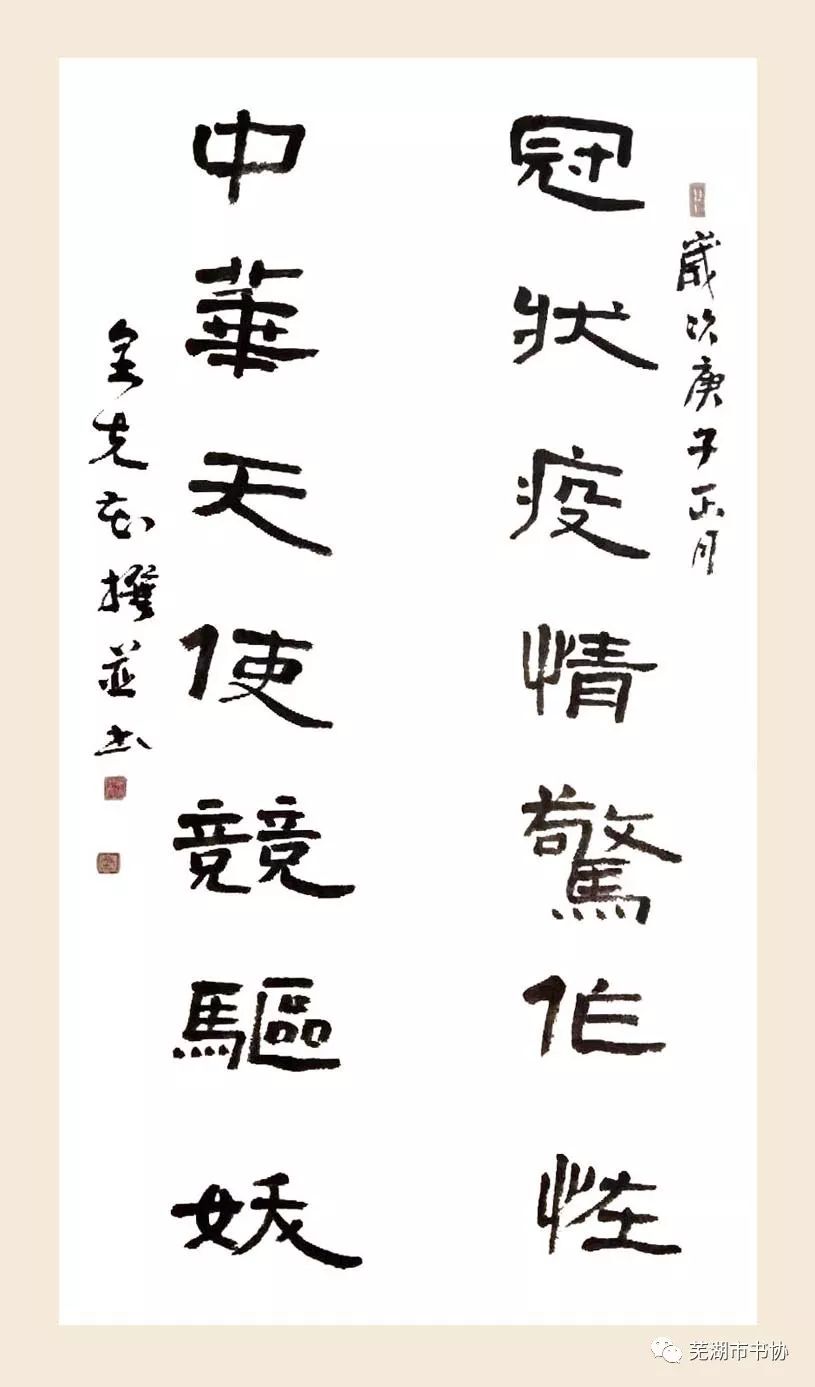 歲次庚子正月
冠狀疫情驚作恠
中華天使競驅妖
金克撰並书
芜湖市书协